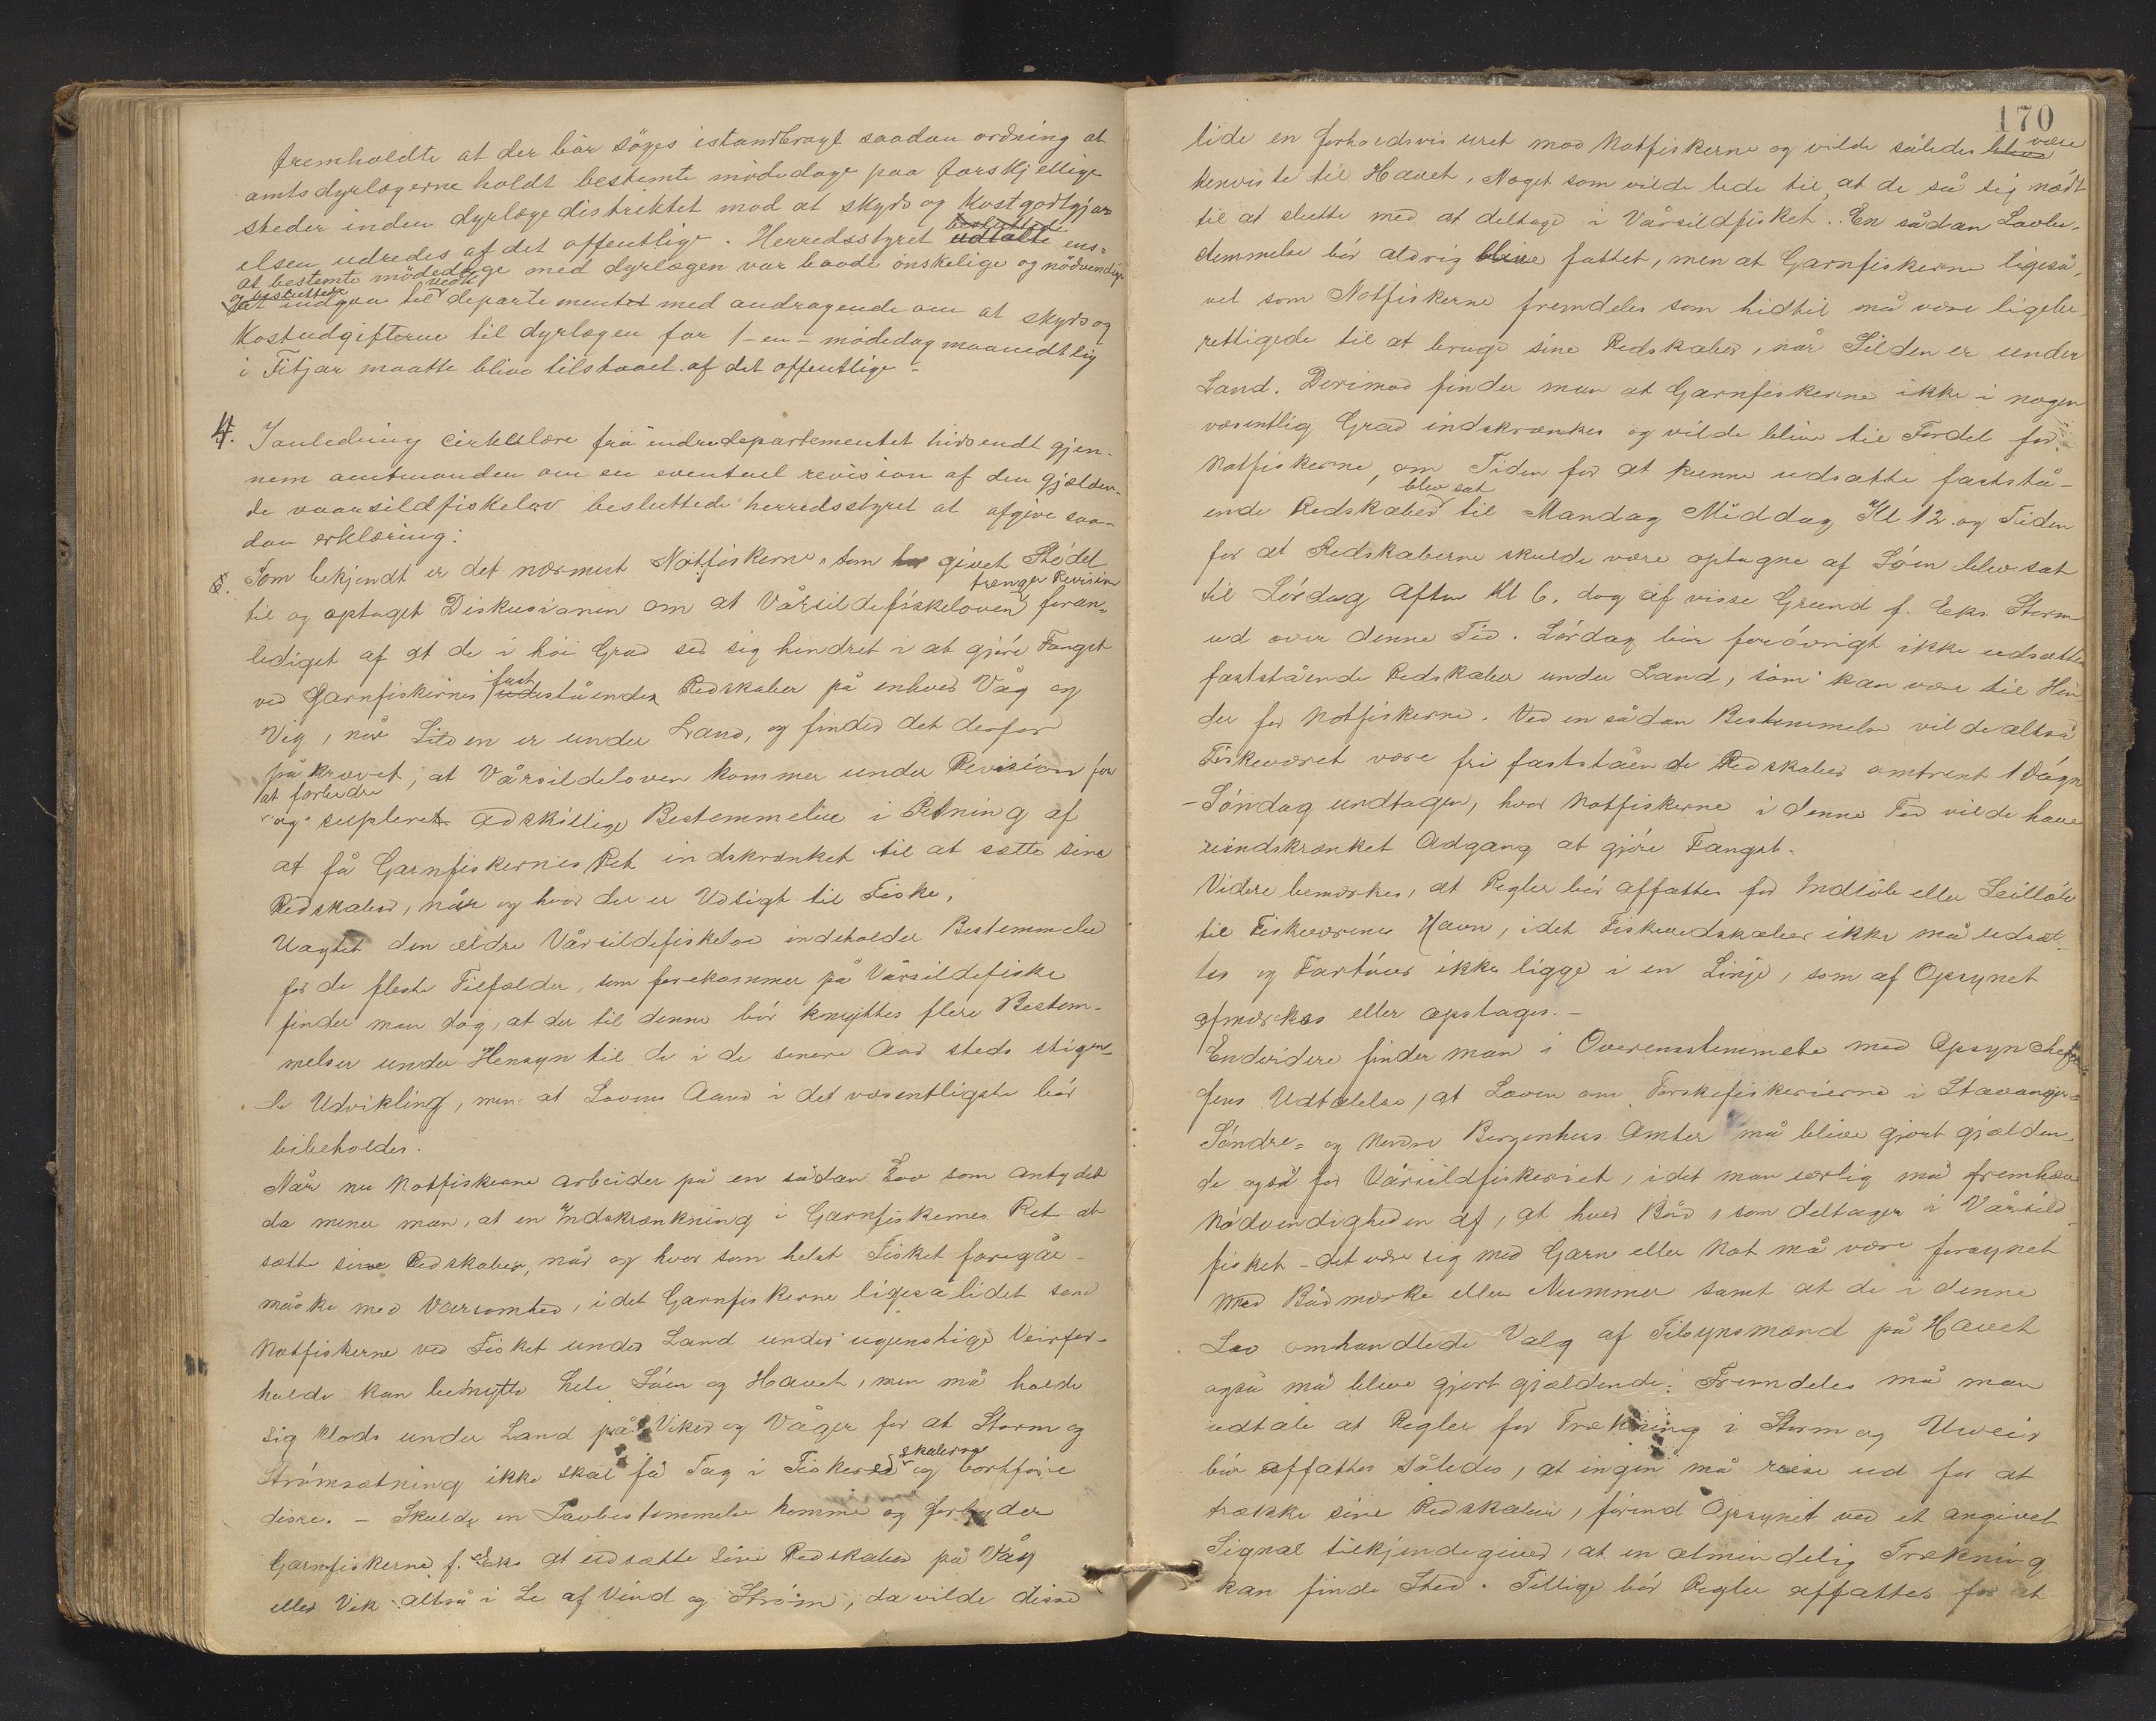 fremholdte at der bör söges istandbragt saadan ordning at
amtsdyrlægerne holdt bestemte mödedage paa forskjellige
steder inden dyrlægedistriktet mod at skyds og kostgodtgjør
elsen udredes af det offentlige. Herredsstyret besluttede udtalte ens=
at bestemte mödedage med dyrlægen var baade önskelige og nödvendige
og besluttede at indgaa til departementet med andragende om at skyds og
Kostudgifterne til dyrlægen for 1 - en - mödedag maanedtlig
i Fitjar maatte blive tilstaaet af det offentlige.
4. I anledning cirkulære frå indredepartementet hidsendt gjen-
nem amtmanden om en eventuel revision af den gjælden-
de vaarsildfiskelov besluttede herredsstyret at afgive saa-
dan erklæring:
Som bekjendt er det nærmest Notfiskerne, som har givet Stödet
til og optaget Diskusionen om at Vårsildefiskeloven trænger Revision foran-
lediget af at de i höi Grad ser sig hindret i at gjöre Fangst
ved Garnfiskernes fast udestående Redskaber på enhver Våg og
Vig, når Silden er under Land, og finder det derfor
påkrævet, at Vårsildeloven kommer under Revision for
at forbedre og supleret adskillige Bestemmelser i Retning af
at få Garnfiskernes Ret indskrænket til at sætte sine
Redskaber, når og hvor der er Udsigt til Fiske.
Uagtet den ældre Vårsildefiskelov indeholder Bestemmelser
for de fleste Tilfælder, som forekommer på Vårsildefiske
finder man dog, at der til denne bör knyttes flere Bestem-
melser under Hensyn til de i de senere Aar steds stigen-
de Udvikling, men at Lovens Aand i det væsentligste bör
bibeholdes.
Når nu Notfiskerne arbeider på en sådan Lov som antydet
da mener man, at en Indskrænkning i Garnfiskernes Ret at
sætte sine Redskaber, når og hvor som helst Fisket foregår-
måske med Varsomhed, idet Garnfiskerne ligesålidet som
Notfiskerne ved Fisket under Land under ugunstige Veirfor-
holde kan benytte hele Söen og Havet, men må holde
sig klods under Land på Viker og Våger for at Storm og
Strömsætning ikke skal få Tag i Fiskeredskaberne og bortføre
disse. - Skulde en Lovbestemmelse komme og forbyder
Garnfiskerne f. Eks at udsætte sine Redskaber på Våg
eller Vik altså i Le af Vind og Ström, da vilde disse
170
lide en forholdsvis uret mod Notfiskerne og vilde således blive være
henviste til Havet, Noget som vilde lede til, at de så sig nödt
til at slutte med at deltage i Vårsildfisket. En sådan Lovbe-
stemmelse bör aldrig blive fattet, men at Garnfiskerne ligeså-
vel som Notfiskerne fremdeles som hidtil må være ligebe-
rettigede til at bruge sine Redskaber, når Silden er under
Land. Derimod finder man at Garnfiskerne ikke i nogen
væsentlig Grad indskrænkes og vilde blive til Fordel for
Notfiskerne, om Tiden for at kunne udsætte faststå-
ende Redskaber blev sat til Mandag Middag Kl 12 og Tiden
for at Redskaberne skulde være optagne af Söen blev sat
til Lördag Aften Kl 6, dog af visse Grund f. Eks. Storm
ud over denne Tid. Lördag bör forövrigt ikke udsættes
faststående Redskaber under Land, som kan være til Hin-
der for Notfiskerne. Ved en sådan Bestemmelse vilde altså
Fiskeværet være fri faststående Redskaber omtrent 1 Dögn
- Söndag undtagen, hvor Notfiskerne i denne Tid vilde have
uindskrænket Adgang at gjöre Fangst.
Videre bemærkes, at Regler bör affattes for Indlöb eller Seillöb
til Fiskeværenes Havn, idet Fiskeredskaber ikke må udsæt-
tes og Fartöier ikke ligge i en Linje, som af Opsynet
afmærkes eller opstages.-
Endvidere finder man i Overensstemmelse med Opsynchef-
fens Udtalelse, at Loven om Torskefiskerierne i Stavanger
Söndre= og Nordre Bergenhus Amter må blive gjort gjælden-
de også for Vårsildfiskeriet, idet man særlig må fremhæve
Nödvendigheden af, at hver Båd, som deltager i Vårsild-
fisket - det være sig med Garn eller Not må være forsynet
med Bådmærke eller Nummer samt at de i denne
Lov omhandlede Valg af Tilsynsmænd på Havet
også må blive gjort gjældende. Fremdeles må man
udtale at Regler for Trækning i Storm og Uveir
bör affattes således, at ingen må reise ud for at
trække sine Redskaber, förend Opsynet ved et angivet
Signal tilkjendegiver, at en almindelig Trækning
kan finde Sted. Tillige bör Regler affattes for at